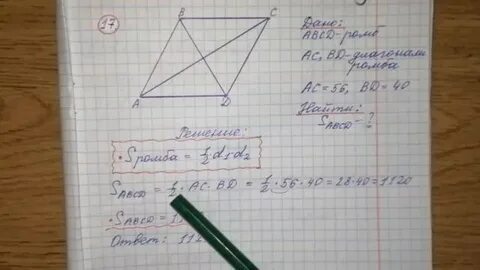 17
B
C
A
D
Дано:
ABCD-ромб
AC, BD-диагонали
ромба
AC=56, BD=40
Найти:
S ABCD - ?
Решение:
• S ромба = 1/2 d1·d2
S ABCD = 1/2 · AC · BD = 1/2 · 56 · 40 = 28·40 = 1120
• S ABCD = 11
Ответ: 112